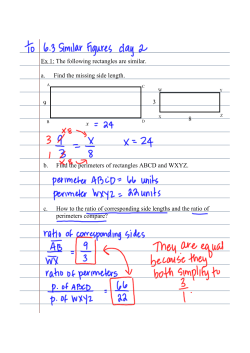 to 6.3 Similar Figures day 2
Ex 1: The following rectangles are similar.
a. Find the missing side length.
A C W Y
9 3
B D X Z
x = 24 8
3 9 = x x = 24
1 3 8
x8
x8
b. Find the perimeters of rectangles ABCD and WXYZ.
perimeter ABCD = 66 units
perimeter WXYZ = 22 units
c. How to the ratio of corresponding side lengths and the ratio of
perimeters compare?
ratio of corresponding sides
AB = 9
WX 3
ratio of perimeters
p. of ABCD = 66
p. of WXYZ 22
They are equal
because they
both simplify to
3
1